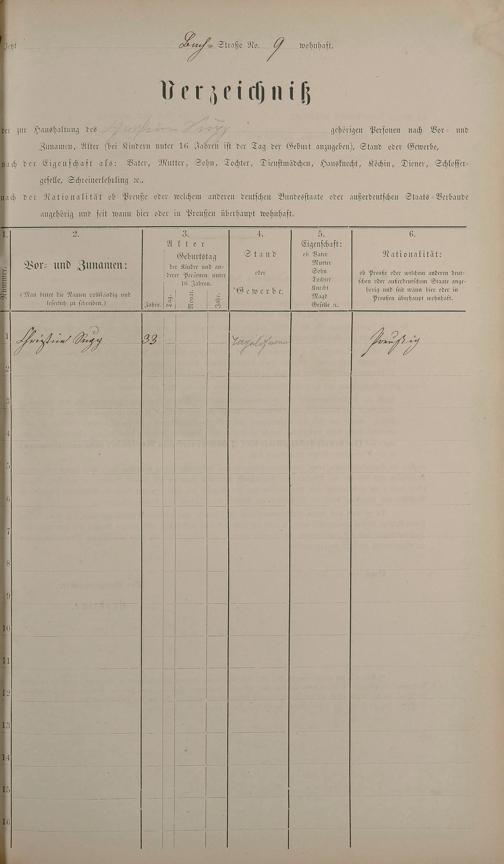 Jetzt Bach= Straße No. 9 wohnhaft.
Verzeichniß
der zur Haushaltung des gehörigen Personen nach Vor- und
Zunamen, Alter (bei Kindern unter 16 Jahren ist der Tag der Geburt anzugeben), Stand oder Gewerbe,
nach der Eigenschaft als: Vater, Mutter, Sohn, Tochter, Dienstmädchen, Hausknecht, Köchin, Diener, Schlosser-
geselle, Schreinerlehrling &c.,
nach der Nationalität ob Preuße oder welchem anderen deutschen Bundesstaate oder außerdeutschen Staats-Verbande
angehörig und seit wann hier oder in Preußen überhaupt wohnhaft.
1.
Nummer.
2.
Vor- und Zunamen:
(Man bittet die Namen vollständig und
leserlich zu schreiben.)
3.
Alter
Geburtstag
der Kinder und an-
derer Personen unter
16 Jahren.
Jahre.
Tag.
Monat.
Jahr.
4.
Stand
oder
Gewerbe.
5.
Eigenschaft:
ob Vater
Mutter
Sohn
Tochter
Knecht
Magd
Geselle &c.
6.
Nationalität:
ob Preuße oder welchem anderen deut-
schen oder außerdeutschen Staate ange-
hörig und seit wann hier oder in
Preußen überhaupt wohnhaft.
1 33
2
3
4
5
6
7
8
9
10
11
12
13
14
15
16